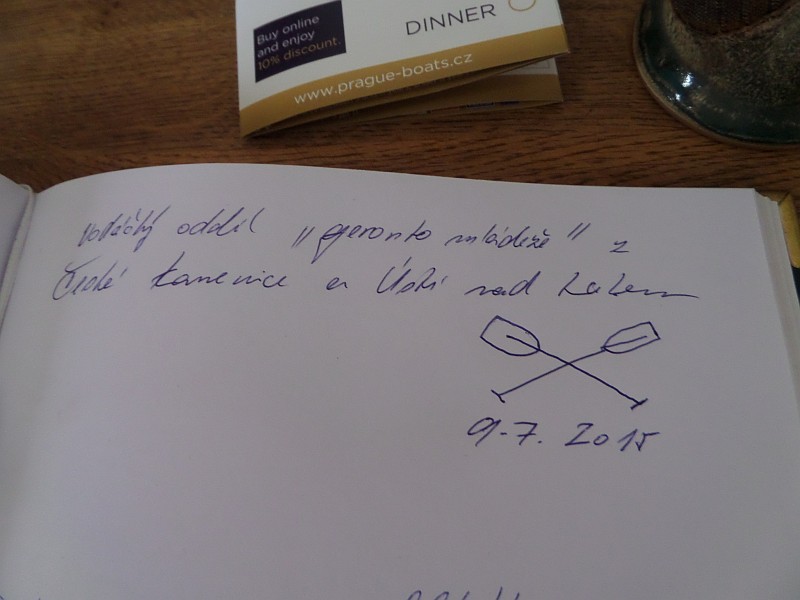 Buy online
and enjoy
10% discount.
DINNER
www.prague-boats.cz
Vodácký oddíl "geronto mládeže" z
České Kamenice a Ústí nad Labem
9.7. 2015